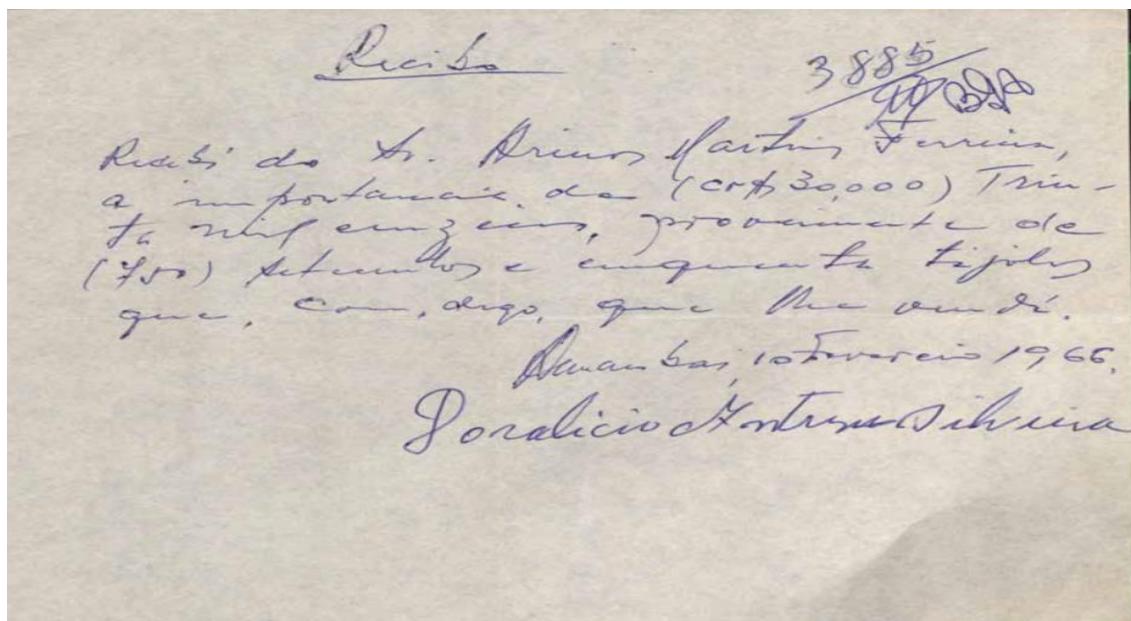 Recibo
3885
Recebi do Sr. Arinos Martins Ferreira,
a importancia de (Cr$ 30,000) Trin-
ta mil cruzeiros, proveniente de
(750) setecentos e cinquenta tijolos
que, com, digo, que lhe vendi.
Amambai, 10 Fevereiro 1966.
Doralicio Silveira